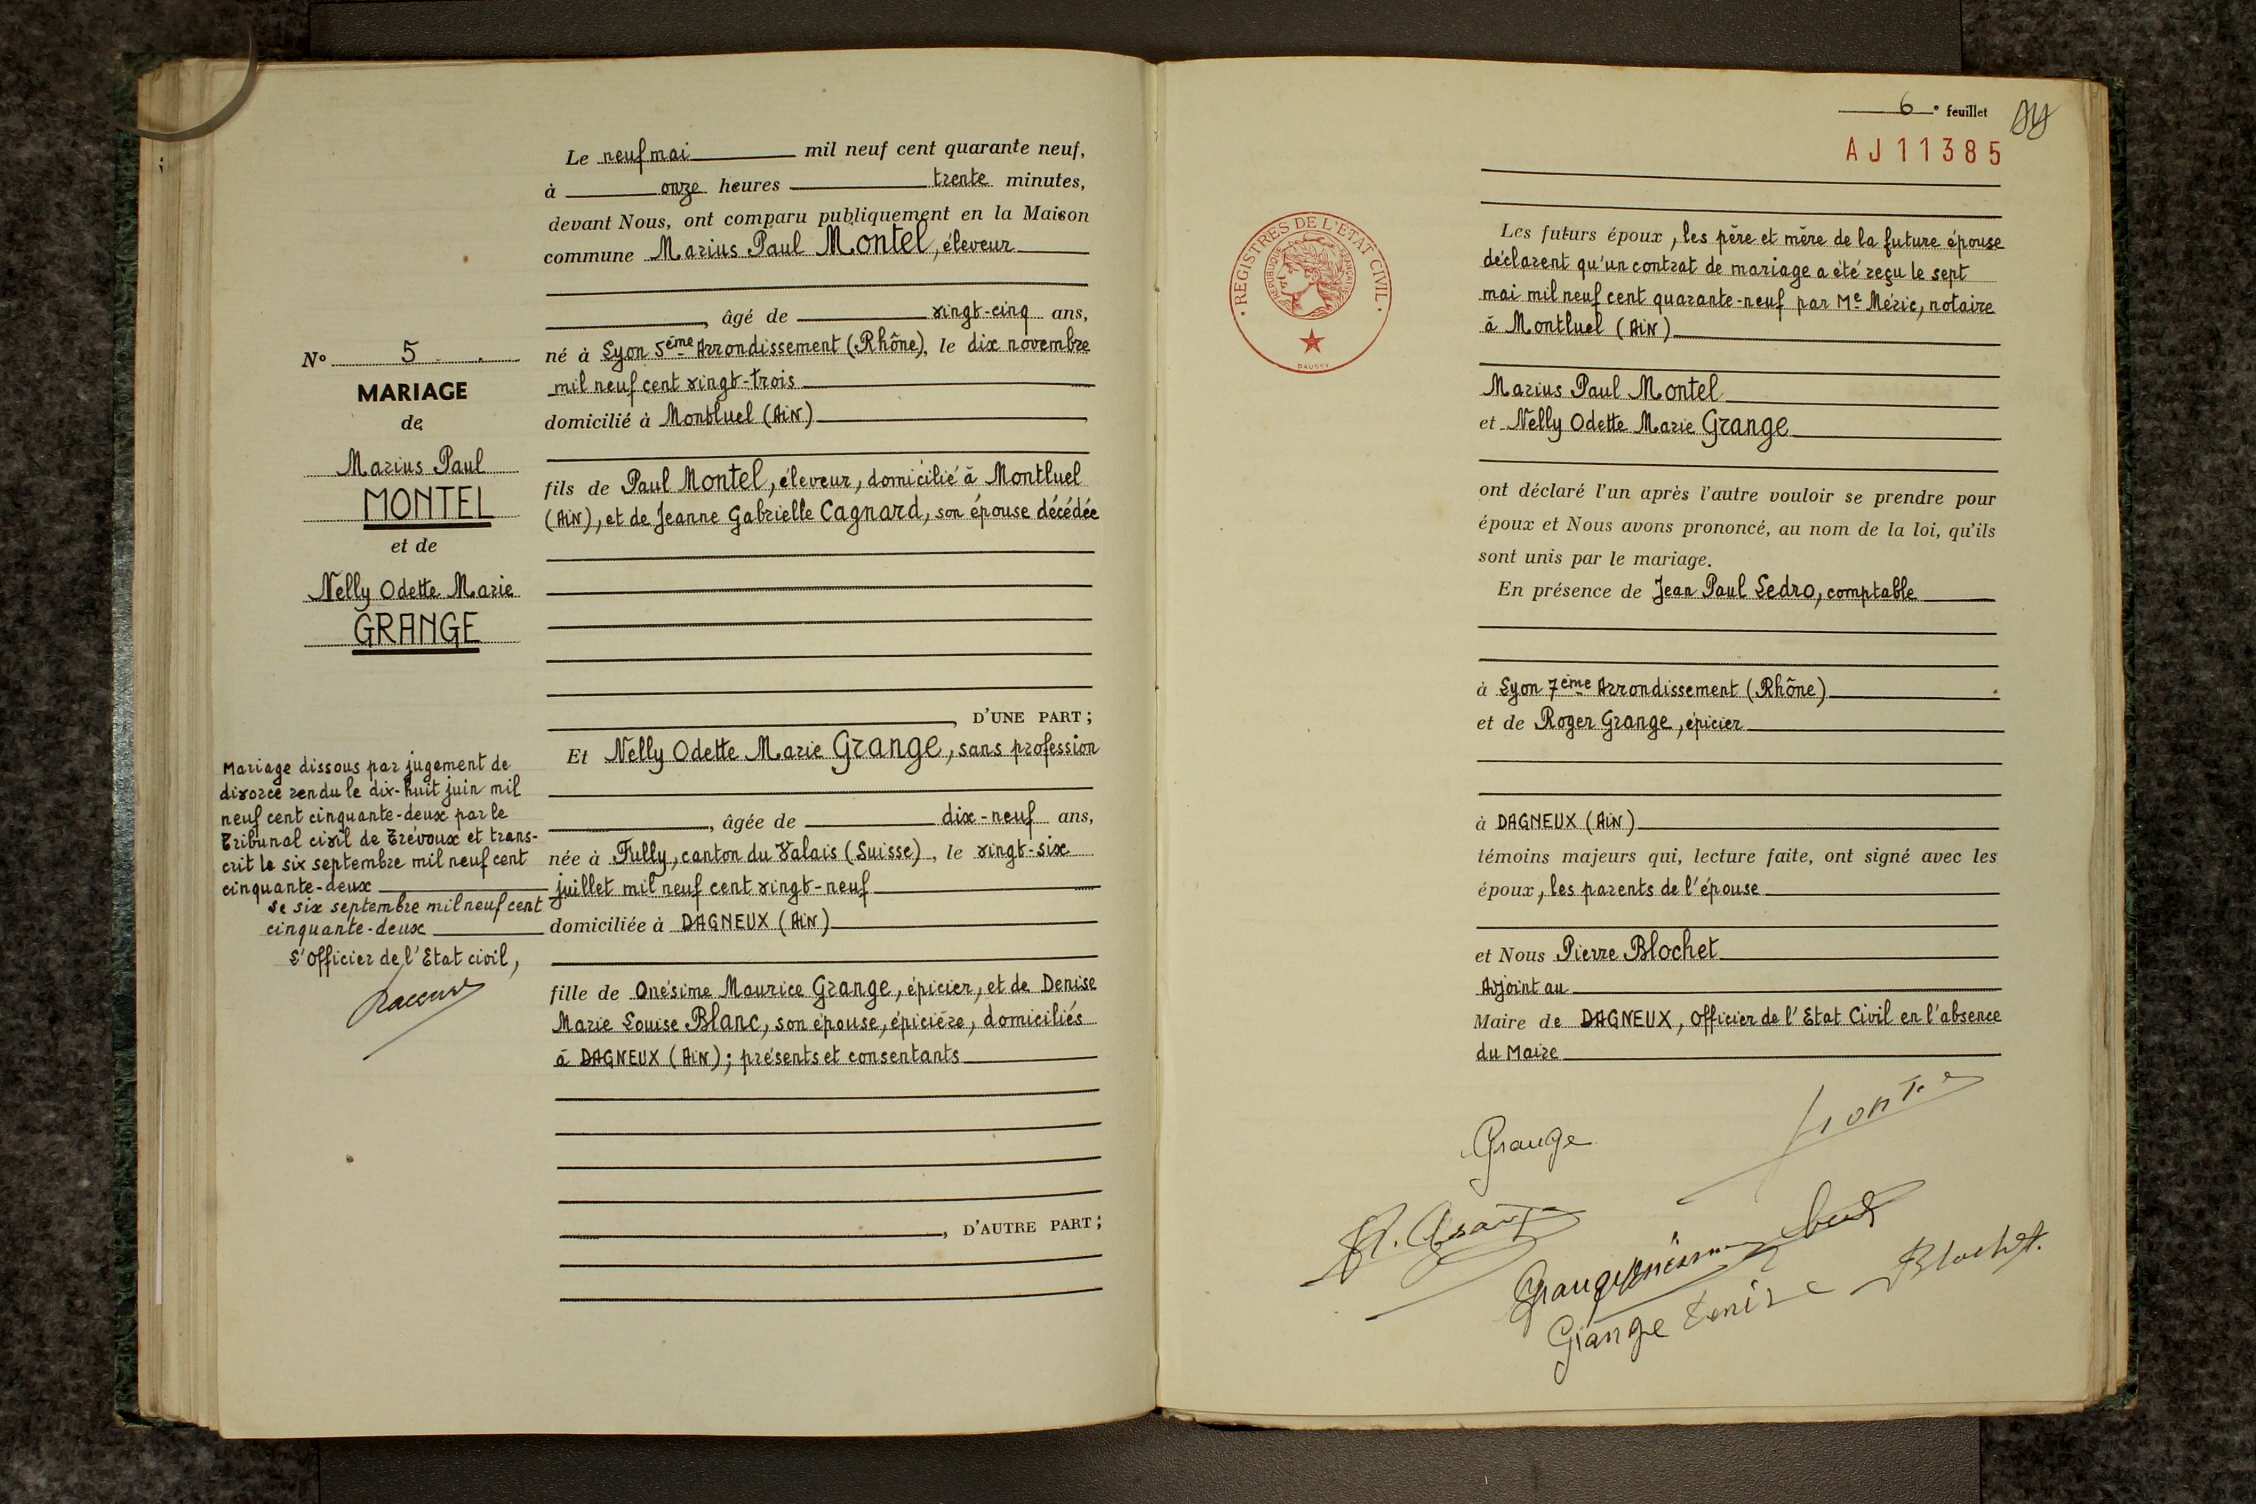 Le neuf mai mil neuf cent quarante neuf,
à onze heures trente minutes,
devant Nous, ont comparu publiquement en la Maison
commune Marius Paul Montel, éleveur
, âgé de vingt-cinq ans,
né à Lyon 5ème Arrondissement (Rhône), le dix novembre
mil neuf cent vingt-trois
domicilié à Montluel (Ain)
fils de Paul Montel, éleveur, domicilié à Montluel
(Ain), et de Jeanne Gabrielle Cagnard, son épouse décédée
D'UNE PART;
Et Nelly Odette Marie Grange, sans profession
, âgée de dix-neuf ans,
née à Fully, canton du Valais (Suisse), le vingt-six
juillet mil neuf cent vingt-neuf
domiciliée à DAGNEUX (Ain)
fille de Onésime Maurice Grange, épicier, et de Denise
Marie Louise Blanc, son épouse, épicière, domiciliés
à DAGNEUX (Ain); présents et consentants
, D'AUTRE PART;
N° 5
MARIAGE
de
Marius Paul
MONTEL
et de
Nelly Odette Marie
GRANGE
Mariage dissous par jugement de
divorce rendu le dix-huit juin mil
neuf cent cinquante-deux par le
Tribunal civil de Trévoux et trans-
crit le six septembre mil neuf cent
cinquante-deux
Le six septembre mil neuf cent
cinquante-deux
L'Officier de l'Etat civil,
6e feuillet
AJ11385
REGISTRES DE L'ÉTAT CIVIL
RÉPUBLIQUE FRANÇAISE
DAUSSY
Les futurs époux, les père et mère de la future épouse
déclarent qu'un contrat de mariage a été reçu le sept
mai mil neuf cent quarante-neuf par Me Méric, notaire
à Montluel (Ain)
Marius Paul Montel
et Nelly Odette Marie Grange
ont déclaré l'un après l'autre vouloir se prendre pour
époux et Nous avons prononcé, au nom de la loi, qu'ils
sont unis par le mariage.
En présence de Jean Paul Ledro, comptable
à Lyon 7ème Arrondissement (Rhône)
et de Roger Grange, épicier
à DAGNEUX (Ain)
témoins majeurs qui, lecture faite, ont signé avec les
époux, les parents de l'épouse
et Nous Pierre Blochet
Adjoint au
Maire de DAGNEUX, Officier de l'Etat Civil en l'absence
du Maire
Grange
R. Grange
Grange Onésime
Blochet.
Grange Denise